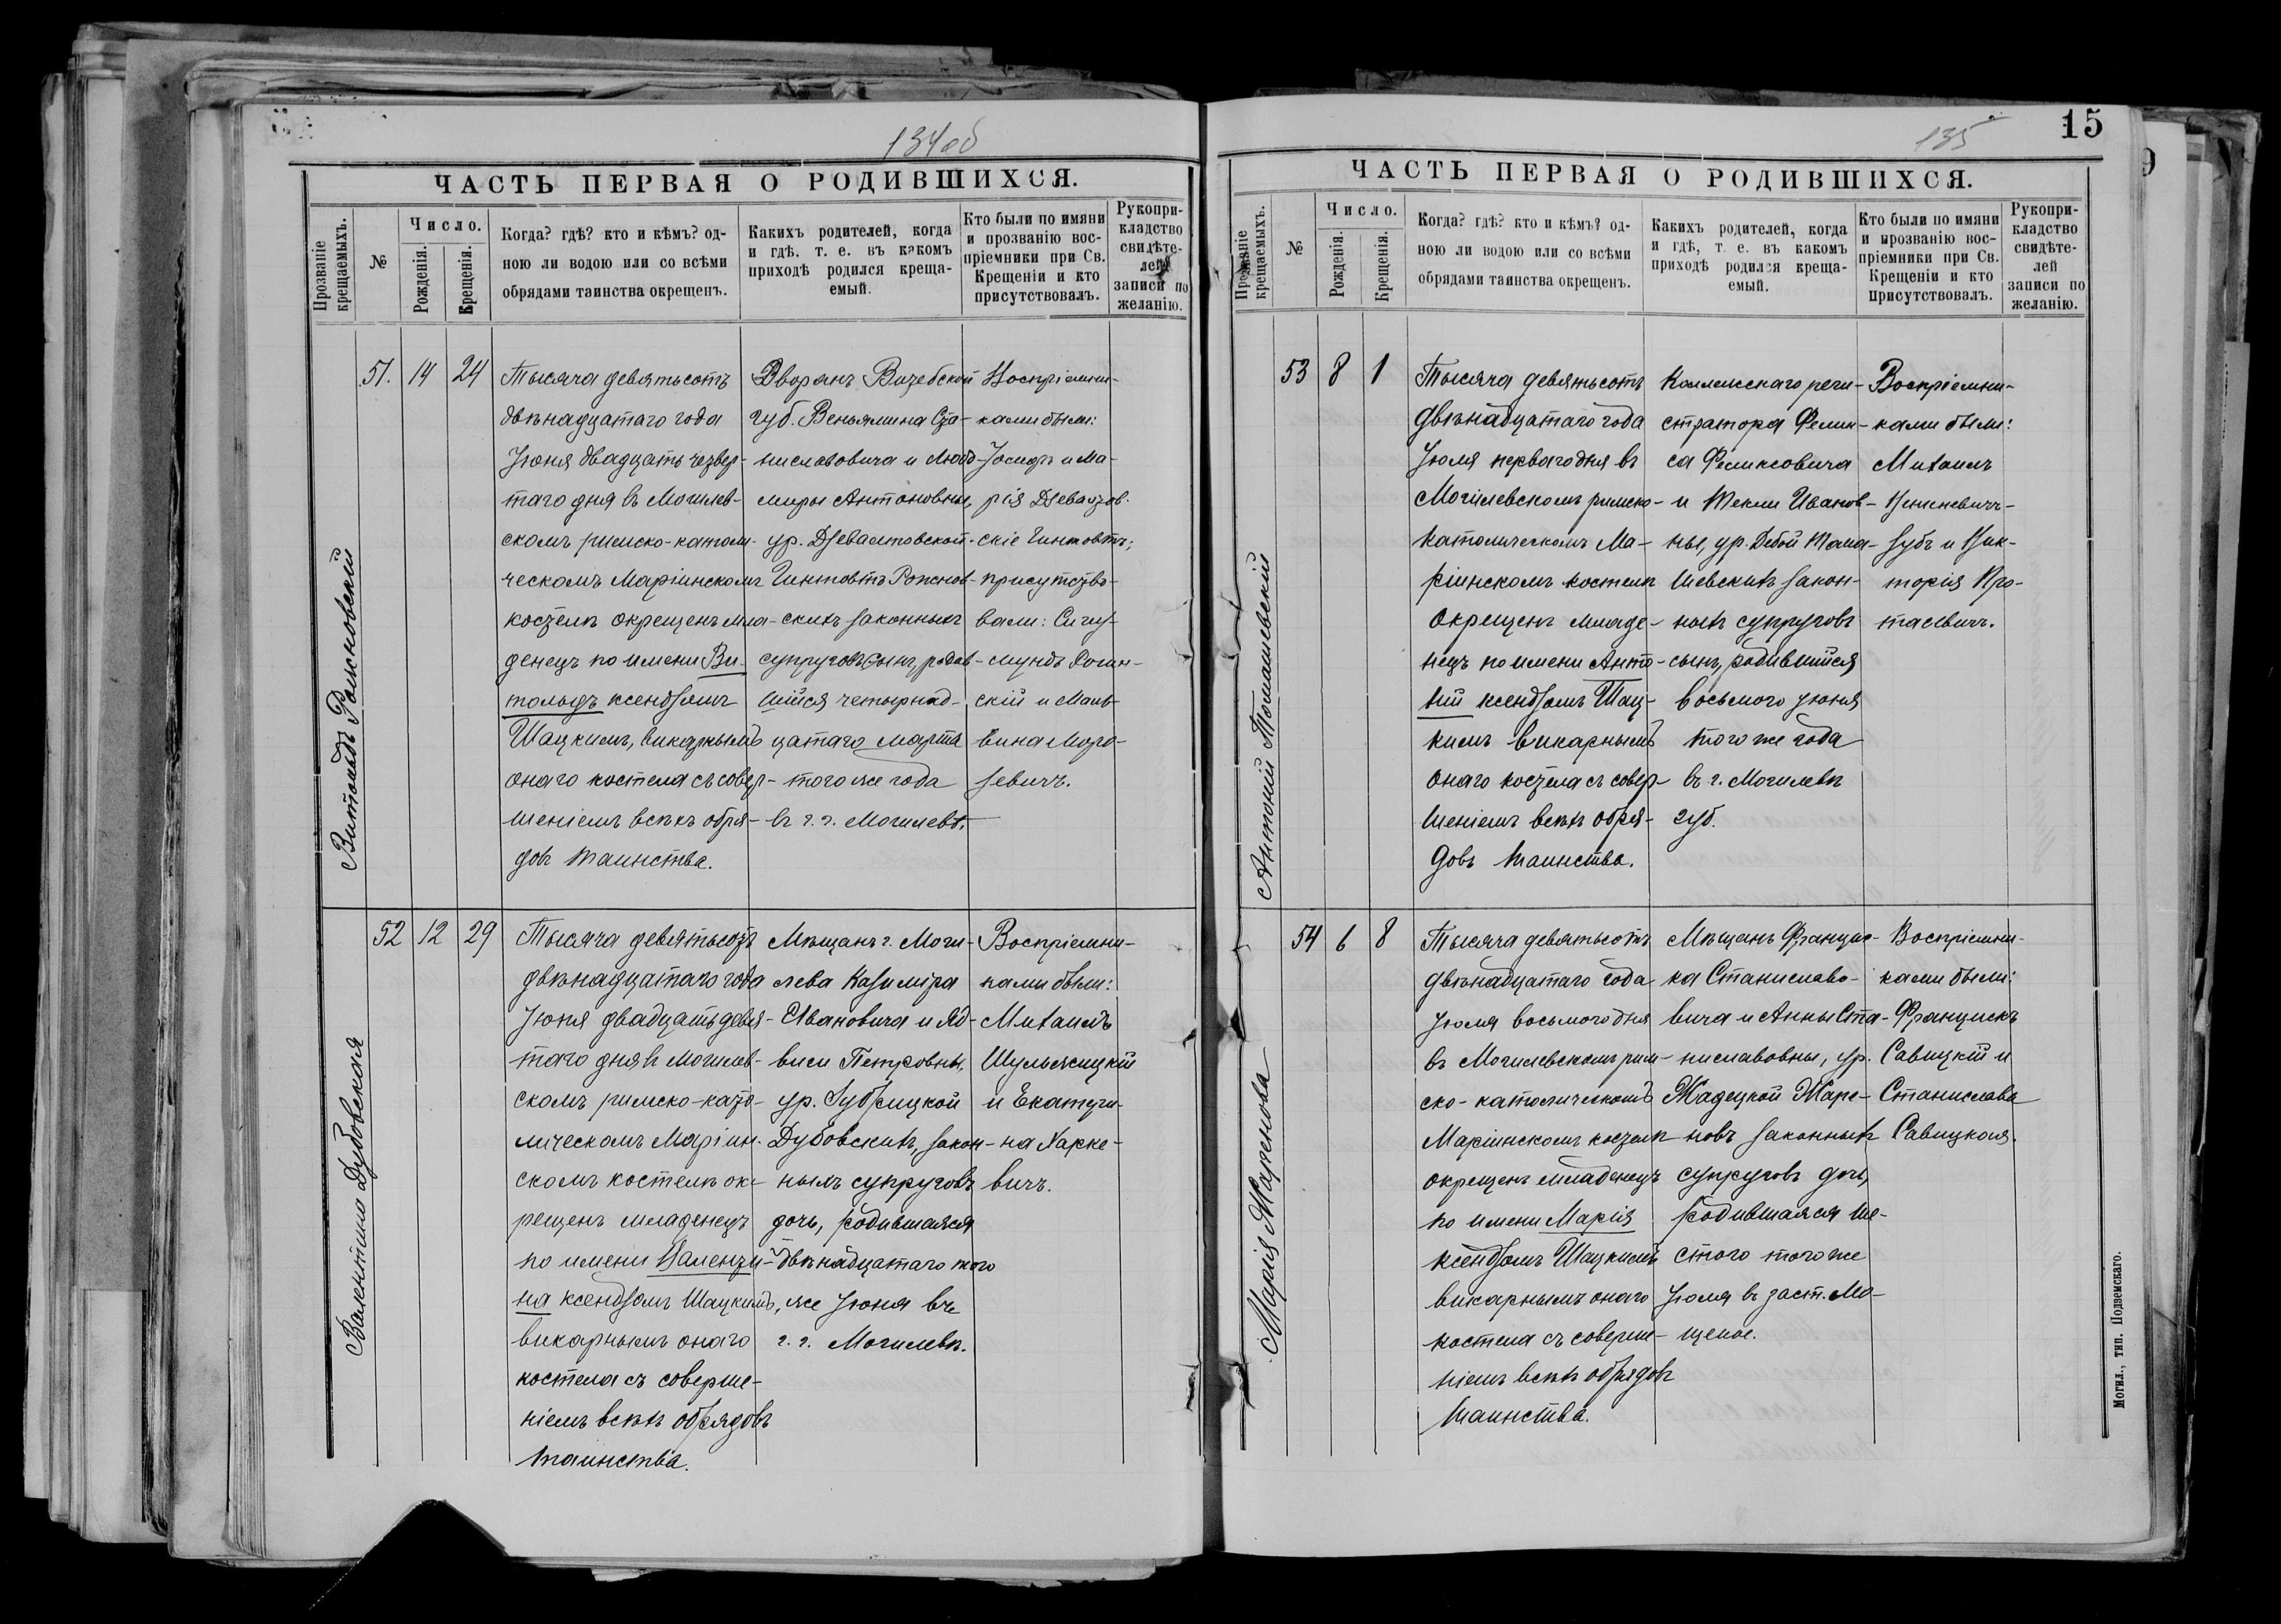 134об
ЧАСТЬ ПЕРВАЯ О РОДИВШИХСЯ.
Прозваніе крещаемыхъ.
№
Число.
Рожденія.
Крещенія.
Когда? гдѣ? кто и кѣмъ? од-
ною ли водою или со всѣми
обрядами таинства окрещенъ.
Какихъ родителей, когда
и гдѣ, т. е. въ какомъ
приходѣ родился креща-
емый.
Кто были по имяни
и прозванію вос-
пріемники при Св.
Крещеніи и кто
присутствовалъ.
Рукопри-
кладство
свидѣте-
лей
записи по
желанію.
Витольдъ Ромновскій
51. 14 24
Тысяча девятьсотъ
двѣнадцатаго года
Іюня двадцать четвер-
таго дня въ Могилев-
скомъ римско-католи-
ческомъ Маріинскомъ
костелѣ окрещенъ мла-
денецъ по имени Ви-
тольдъ ксендзомъ
Шацкимъ, викарнымъ
онаго костела съ совер-
шеніемъ всѣхъ обря-
довъ таинства.
Дворянъ Витебской
губ. Веньямина Ста-
ниславовича и Люд-
миры Антоновны,
ур. Дзевалтовской-
Гинтовтъ
скихъ законныхъ
супруговъ сынъ, родив-
шійся четырнад-
цатаго марта
того же года
въ г. г. Могилевѣ.
Воспріемни-
ками были:
Іосифъ и Ма-
рія Дзевалтов-
скіе Гинтовтъ;
присутство-
вали: Сигиз-
мундъ
скій и Маль-
вина Моро-
зевичъ.
Валентина Дубовская
52 12 29
Тысяча девятьсотъ
двѣнадцатаго года
Іюня двадцать девя-
таго дня въ Могилев-
скомъ римско-като-
лическомъ Маріин-
скомъ костелѣ ок-
рещенъ младенецъ
по имени Валенти-
на ксендзомъ Шацкимъ,
викарнымъ онаго
костела съ соверше-
ніемъ всѣхъ обрядовъ
таинства.
Мѣщанъ г. Моги-
лева Казиміра
Ивановича и Яд-
виги Петровны,
ур. Зубрицкой
Дубовскихъ, закон-
ныхъ супруговъ
дочь, родившаяся
двѣнадцатаго того
же Іюня въ
г. г. Могилевѣ.
Воспріемни-
ками были:
Михаилъ
Шульжицкій
и Екатери-
на Харке-
вичъ.
135
15
ЧАСТЬ ПЕРВАЯ О РОДИВШИХСЯ.
Прозваніе крещаемыхъ.
№
Число.
Рожденія.
Крещенія.
Когда? гдѣ? кто и кѣмъ? од-
ною ли водою или со всѣми
обрядами таинства окрещенъ.
Какихъ родителей, когда
и гдѣ, т. е. въ какомъ
приходѣ родился креща-
емый.
Кто были по имяни
и прозванію вос-
пріемники при Св.
Крещеніи и кто
присутствовалъ.
Рукопри-
кладство
свидѣте-
лей
записи по
желанію.
Антоній Томашевскій
53 8 1
Тысяча девятьсотъ
двѣнадцатаго года
Іюля перваго дня въ
Могилевскомъ римско-
католическомъ Ма-
ріинскомъ костелѣ
окрещенъ младе-
нецъ по имени Анто-
ній ксендзомъ Шац-
кимъ викарнымъ
онаго костела съ совер-
шеніемъ всѣхъ обря-
довъ таинства.
Коллежскаго реги-
стратора Фелик-
са Феликсовича
и Текли Иванов-
ны, ур. Дебой Тома-
шевскихъ закон-
ныхъ супруговъ
сынъ, родившійся
восьмого іюня
того же года
въ г. Могилевѣ
губ.
Воспріемни-
ками были:
Михаилъ
и Вик-
торія Про-
тасевичъ.
Марія Жаренова
54 6 8
Тысяча девятьсотъ
двѣнадцатаго года
Іюля восьмого дня
въ Могилевскомъ рим-
ско-католическомъ
Маріинскомъ костелѣ
окрещенъ младенецъ
по имени Марія
ксендзомъ Шацкимъ
викарнымъ онаго
костела съ соверше-
ніемъ всѣхъ обрядовъ
таинства.
Мѣщанъ Францис-
ка Станиславо-
вича и Анны Ста-
ниславовны, ур.
Жадецкой Жаре-
новъ законныхъ
супруговъ дочь,
родившаяся ше-
стого того же
Іюля въ заст. Мо-
щеное.
Воспріемни-
ками были:
Францискъ
Савицкій и
Станислава
Савицкая.
Могил., тип. Подземскаго.